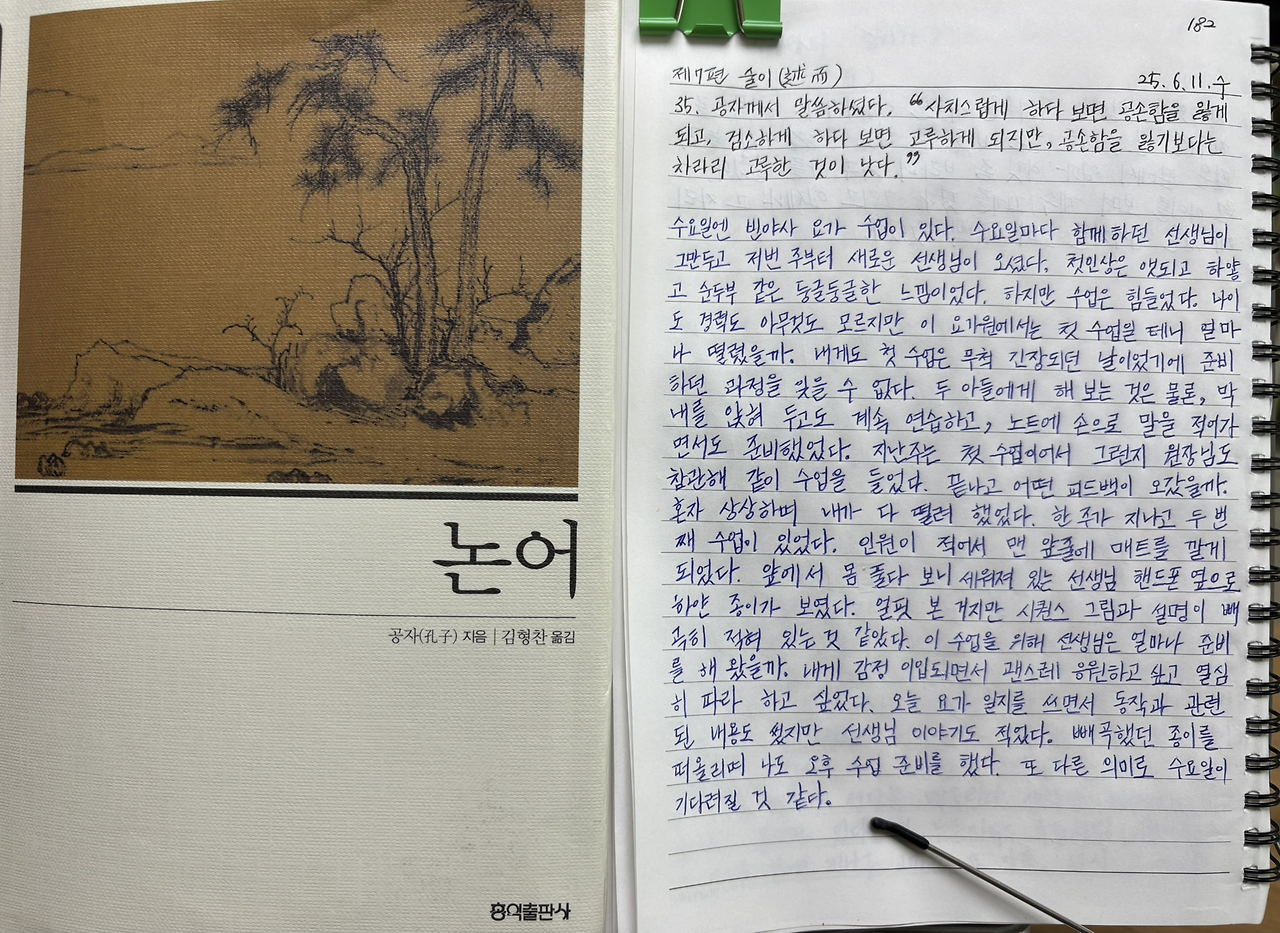 논어
공자(孔子) 지음 | 김형찬 옮김
홍익출판사
182
제7편 술이(述而) 25.6.11.수
35. 공자께서 말씀하셨다. “사치스럽게 하다 보면 공손함을 잃게
되고, 검소하게 하다 보면 고루하게 되지만, 공손함을 잃기보다는
차라리 고루한 것이 낫다.”
수요일엔 빈야사 요가 수업이 있다. 수요일마다 함께하던 선생님이
그만두고 저번 주부터 새로운 선생님이 오셨다. 첫인상은 앳되고 하얗
고 순두부 같은 둥글둥글한 느낌이었다. 하지만 수업은 힘들었다. 나이
도 경력도 아무것도 모르지만 이 요가원에서는 첫 수업일 테니 얼마
나 떨렸을까. 내게도 첫 수업은 무척 긴장되던 날이었기에 준비
하던 과정을 잊을 수 없다. 두 아들에게 해 보는 것은 물론, 막
내를 앉혀 두고도 계속 연습하고, 노트에 손으로 말을 적어가
면서도 준비했었다. 지난주는 첫 수업이어서 그런지 원장님도
참관해 같이 수업을 들었다. 끝나고 어떤 피드백이 오갔을까.
혼자 상상하며 내가 다 떨려 했었다. 한 주가 지나고 두 번
째 수업이 있었다. 인원이 적어서 맨 앞줄에 매트를 깔게
되었다. 앞에서 몸 풀다 보니 세워져 있는 선생님 핸드폰 옆으로
하얀 종이가 보였다. 얼핏 본 거지만 시퀀스 그림과 설명이 빼
곡히 적혀 있는 것 같았다. 이 수업을 위해 선생님은 얼마나 준비
를 해 왔을까. 내게 감정 이입되면서 괜스레 응원하고 싶고 열심
히 따라 하고 싶었다. 오늘 요가 일지를 쓰면서 동작과 관련
된 내용도 썼지만 선생님 이야기도 적었다. 빼곡했던 종이를
떠올리며 나도 오후 수업 준비를 했다. 또 다른 의미로 수요일이
기다려질 것 같다.